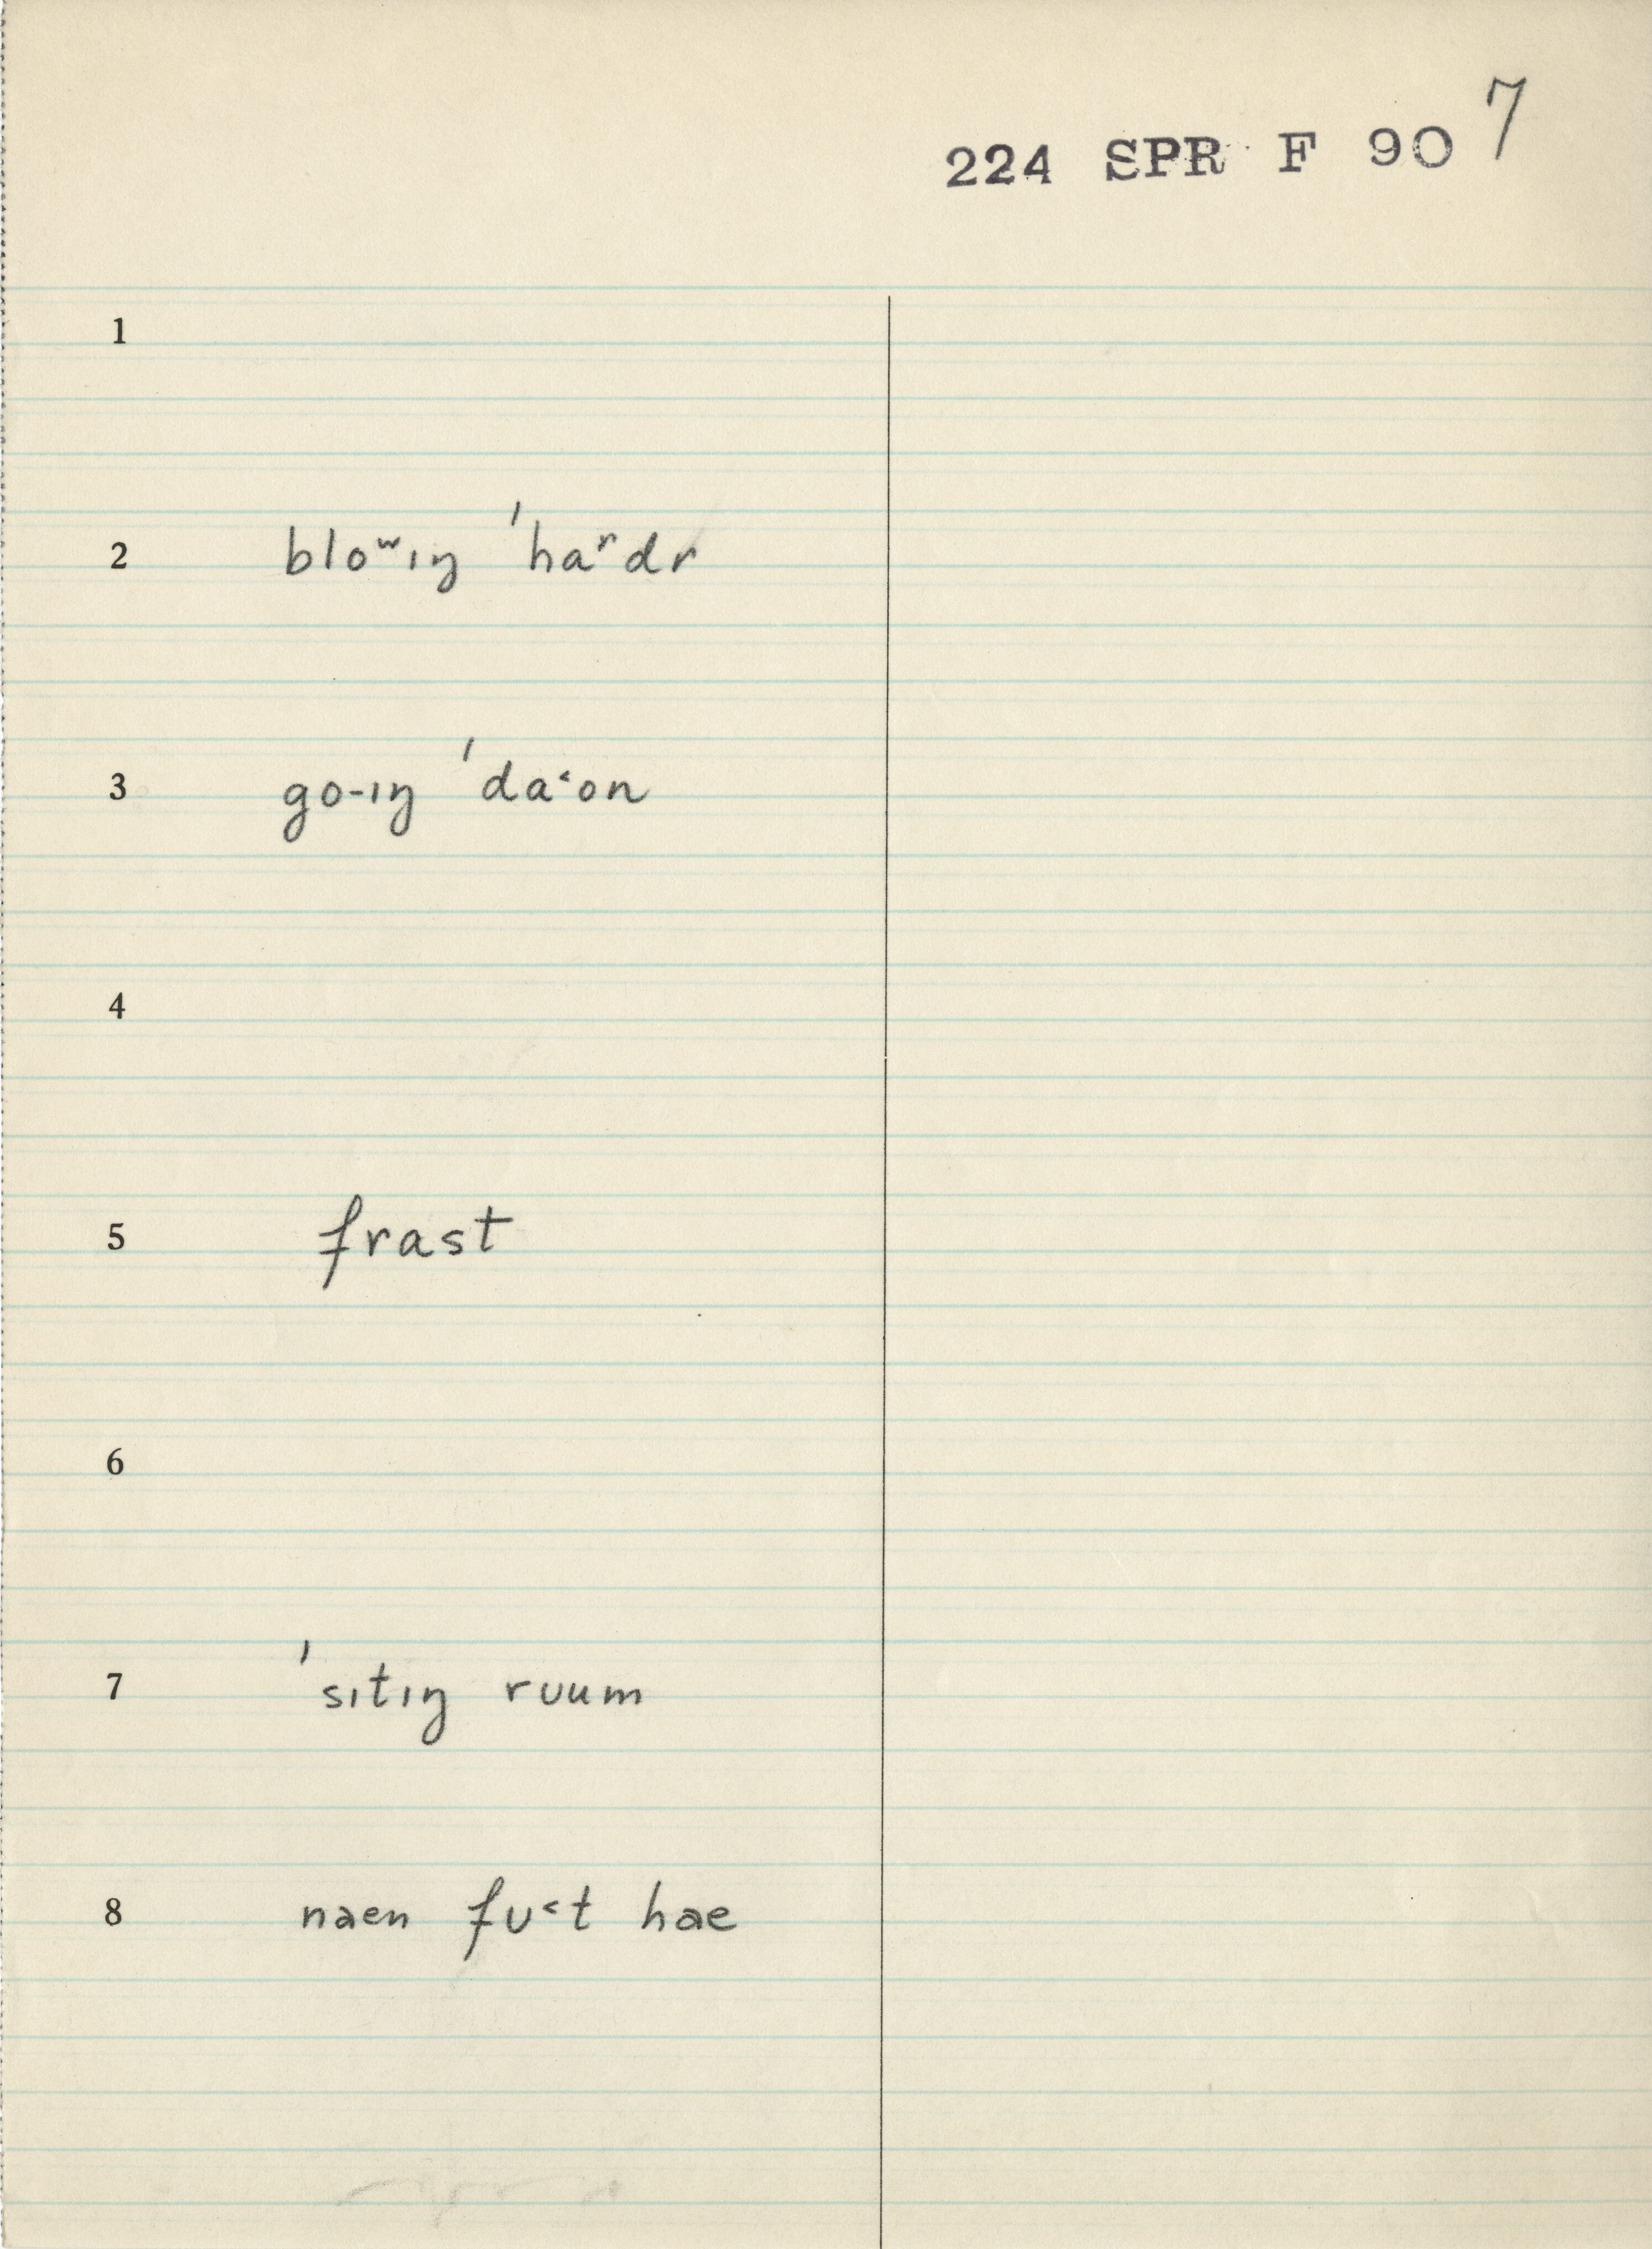 7
224 SPR F 90
1
2 bloʷıŋ 'haʳdr
3 go-ıŋ 'da˂on
4
5 frast
6
7 'sıtıŋ rʊum
8 naen fʊ˂t hae